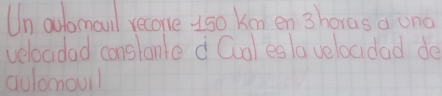 Un automouil recorre 150 Km en 3horas a una
velocidad constante ¿ Cual es la velocidad de
automouil